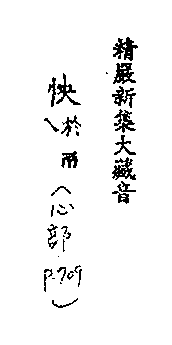 精嚴新集大藏音
怏於兩（心部 p.709）